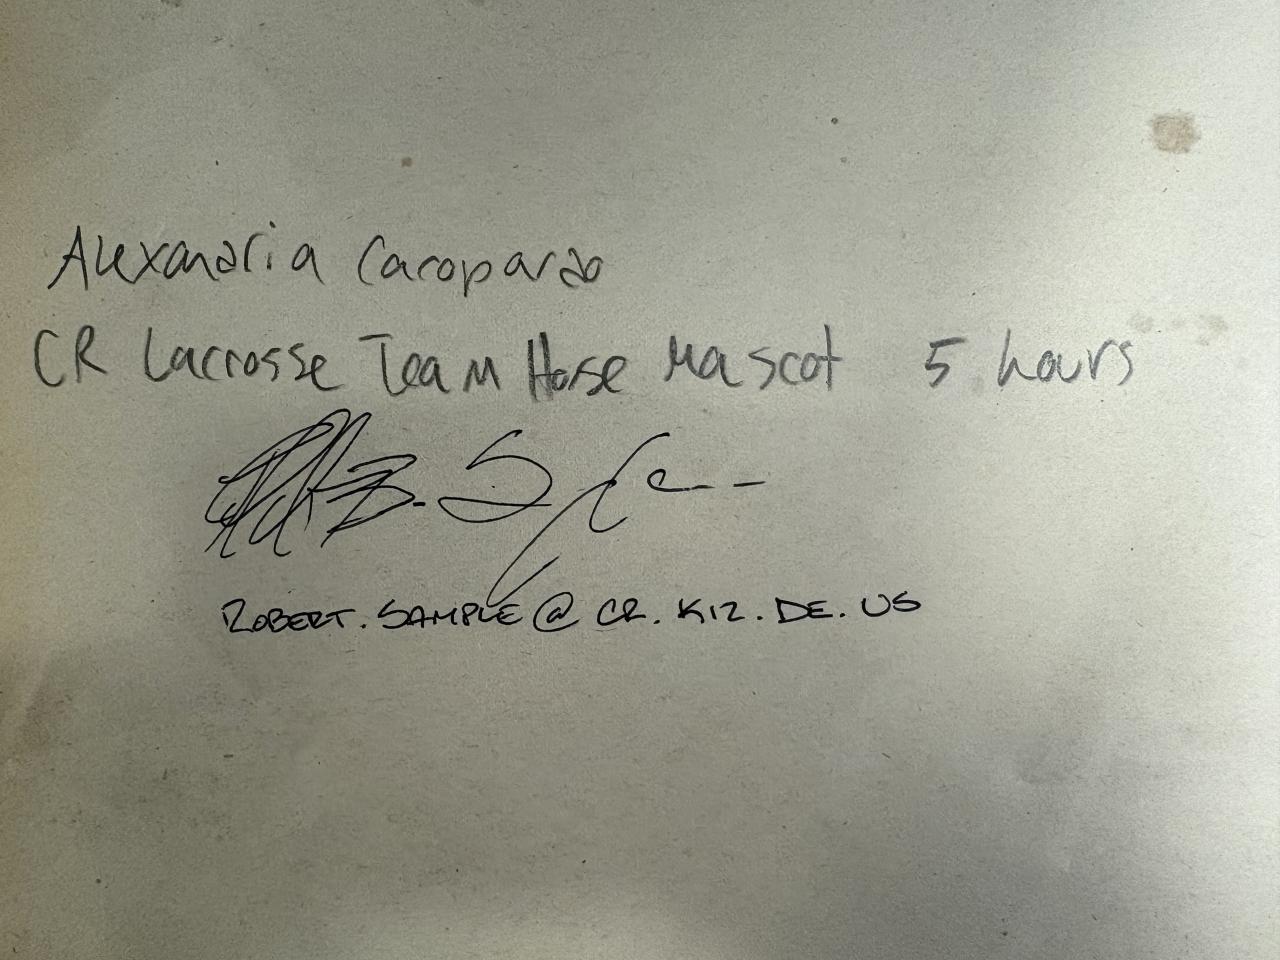 Alexandria Caropardo
CR Lacrosse Team Horse Mascot 5 hours
ROBERT.SAMPLE@CR.K12.DE.US